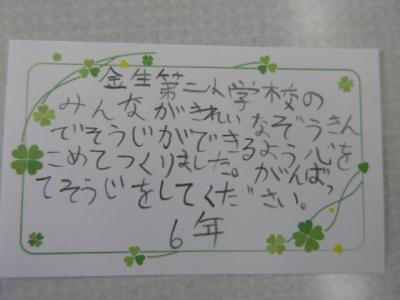 金生第二小学校の
みんながきれいなぞうきん
でそうじができるよう心を
こめてつくりました。がんばっ
てそうじをしてください。
6年